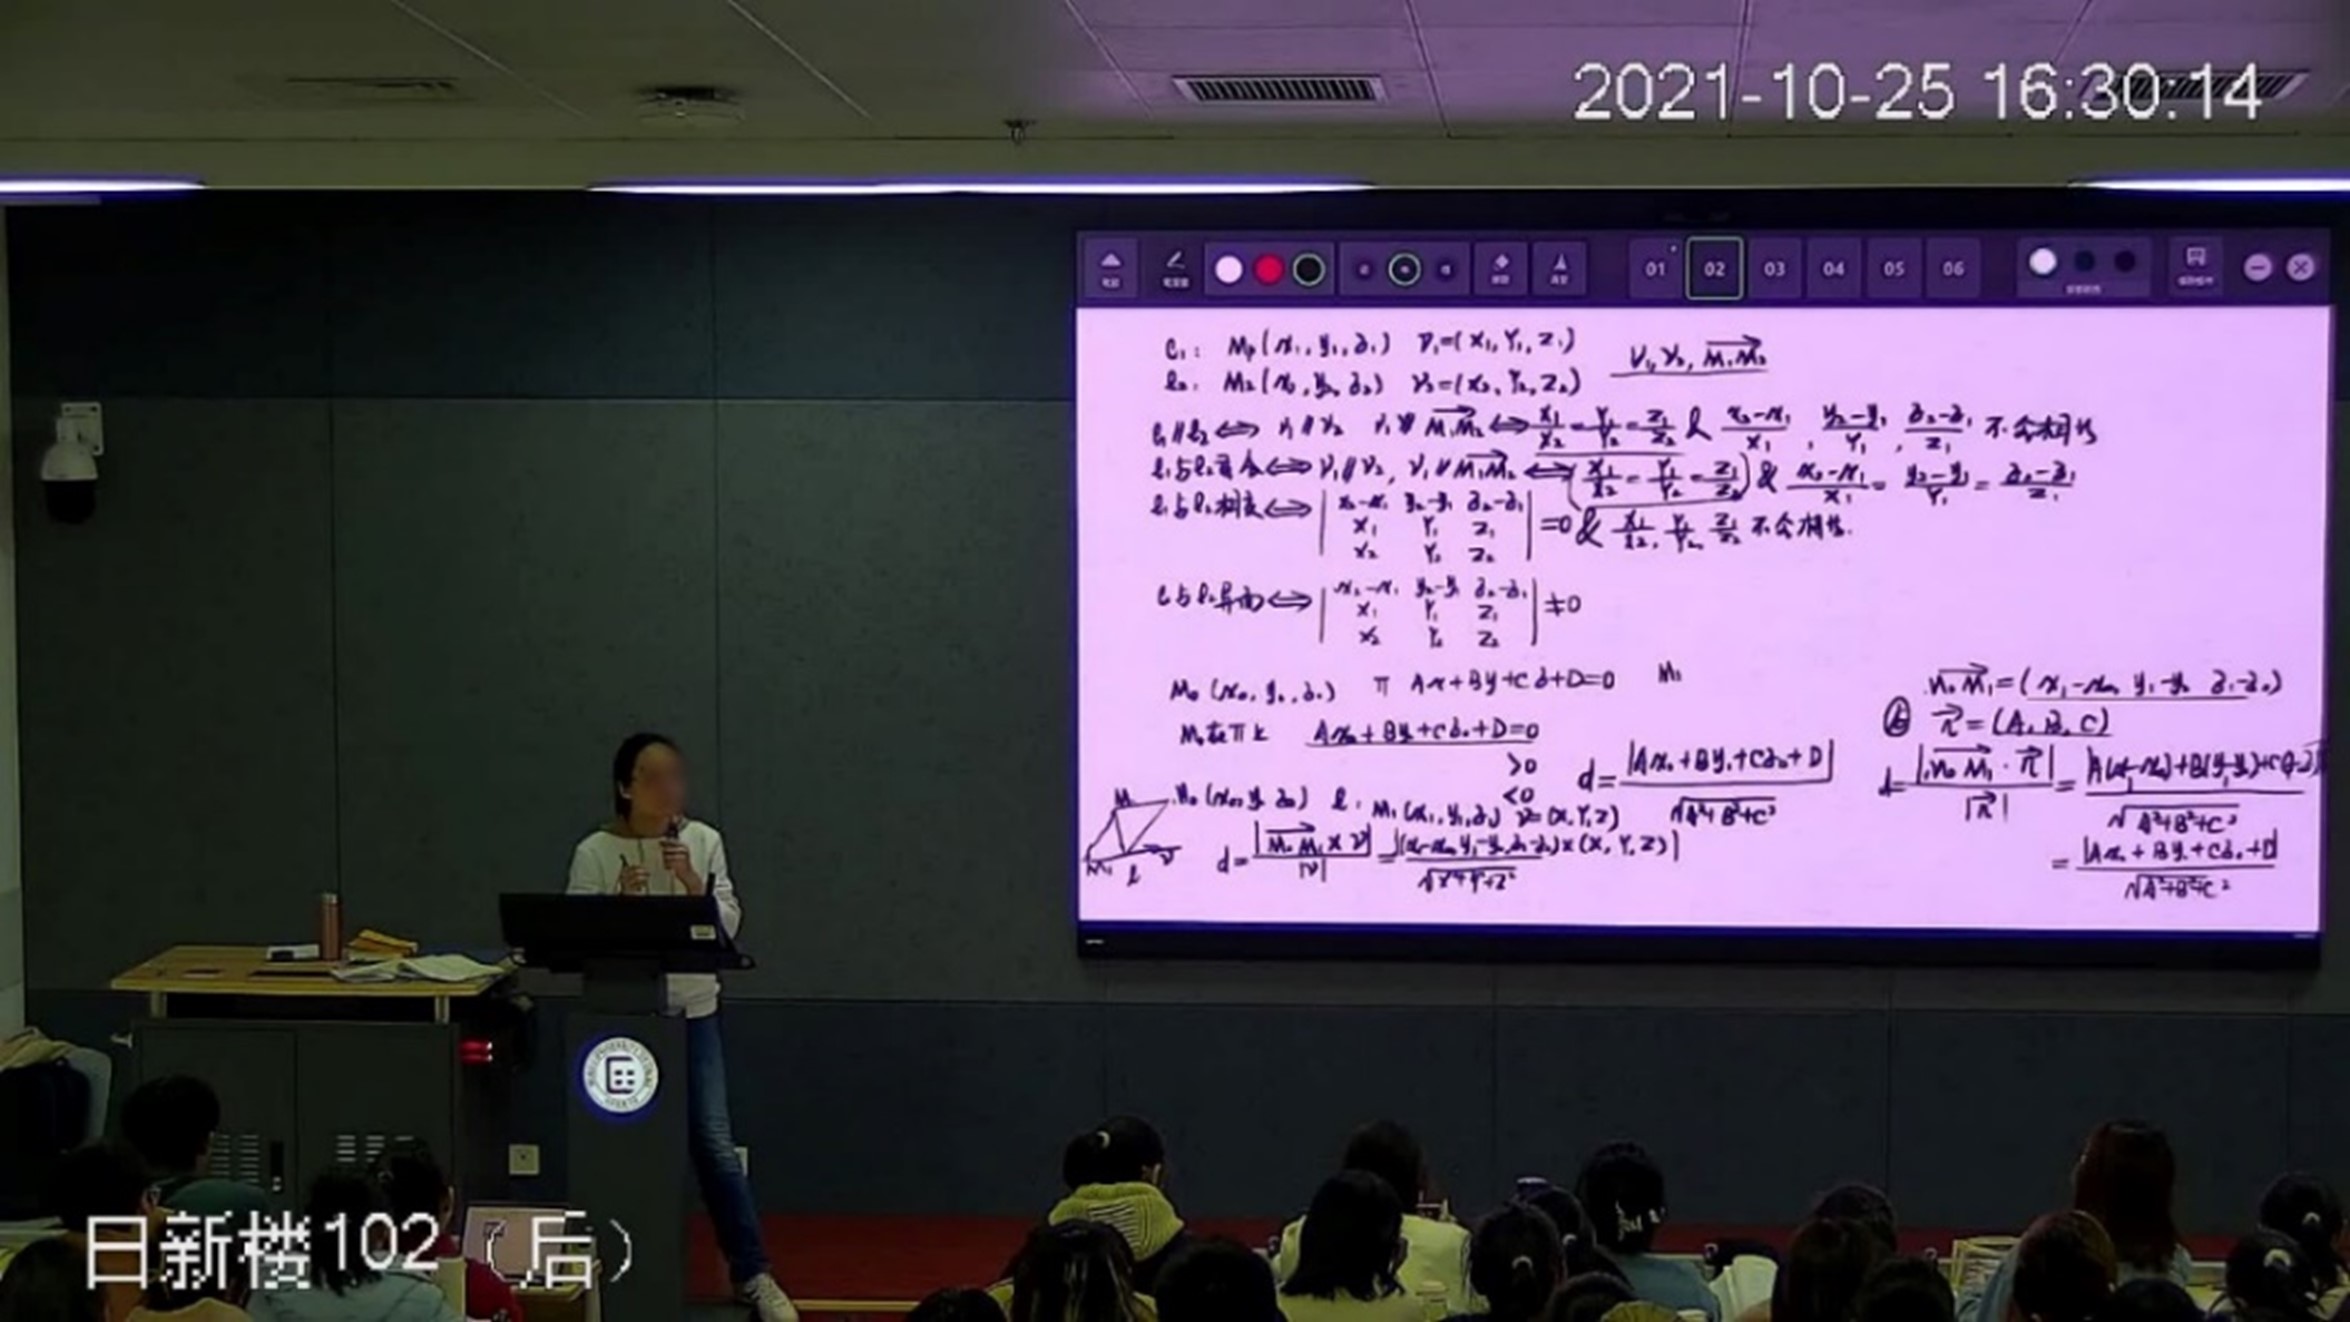 2021-10-25 16:30:14
01 02 03 04 05 06
l₁: M₁(x₁, y₁, z₁) v₁=(X₁, Y₁, Z₁)
v₁, v₂, \overrightarrow{M₁M₂}
l₂: M₂(x₂, y₂, z₂) v₂=(X₂, Y₂, Z₂)
l₁∥l₂ ⟺ v₁∥v₂ v₁∦\overrightarrow{M₁M₂} ⟺ X₁/X₂=Y₁/Y₂=Z₁/Z₂ & (x₂-x₁)/X₁, (y₂-y₁)/Y₁, (z₂-z₁)/Z₁ 不全相等
l₁与l₂重合 ⟺ v₁∥v₂, v₁∥\overrightarrow{M₁M₂} ⟺ (X₁/X₂=Y₁/Y₂=Z₁/Z₂) & (x₂-x₁)/X₁=(y₂-y₁)/Y₁=(z₂-z₁)/Z₁
l₁与l₂相交 ⟺ | x₂-x₁ y₂-y₁ z₂-z₁ |
| X₁ Y₁ Z₁ | =0 & X₁/X₂, Y₁/Y₂, Z₁/Z₂ 不全相等.
| X₂ Y₂ Z₂ |
l₁与l₂异面 ⟺ | x₂-x₁ y₂-y₁ z₂-z₁ |
| X₁ Y₁ Z₁ | ≠0
| X₂ Y₂ Z₂ |
M₀(x₀, y₀, z₀) π Ax+By+Cz+D=0 M₁
\overrightarrow{M₀M₁}=(x₁-x₀, y₁-y₀, z₁-z₀)
\vec{n}=(A, B, C)
M₀在π上 Ax₀+By₀+Cz₀+D=0
>0
<0
d=|Ax₀+By₀+Cz₀+D|/√(A²+B²+C²)
d=|\overrightarrow{M₀M₁}·\vec{n}|/|\vec{n}|=|A(x₁-x₀)+B(y₁-y₀)+C(z₁-z₀)|/√(A²+B²+C²)
=|Ax₀+By₀+Cz₀+D|/√(A²+B²+C²)
M₀(x₀, y₀, z₀) l: M₁(x₁, y₁, z₁) v=(X, Y, Z)
M₀
M₁ l v
d=|\overrightarrow{M₀M₁}×v|/|v|=|(x₁-x₀, y₁-y₀, z₁-z₀)×(X, Y, Z)|/√(X²+Y²+Z²)
日新楼102（后）